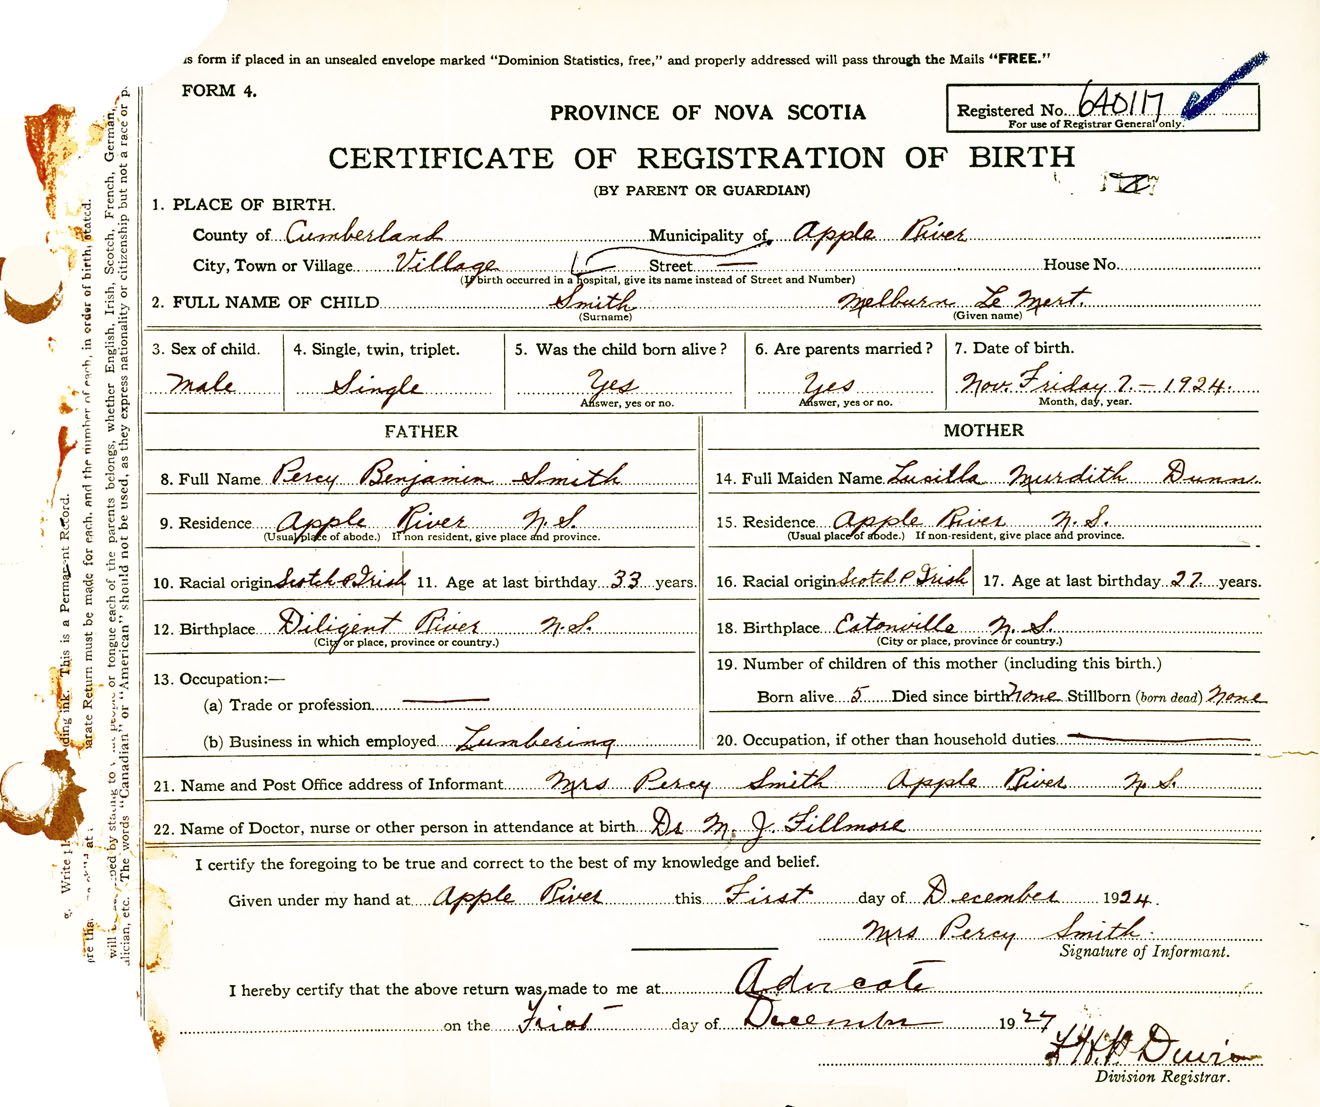 is form if placed in an unsealed envelope marked "Dominion Statistics, free," and properly addressed will pass through the Mails "FREE."
FORM 4.
PROVINCE OF NOVA SCOTIA
Registered No. 640117
For use of Registrar General only.
CERTIFICATE OF REGISTRATION OF BIRTH
(BY PARENT OR GUARDIAN)
1. PLACE OF BIRTH.
County of Cumberland Municipality of Apple River
City, Town or Village Village Street — House No.
(If birth occurred in a hospital, give its name instead of Street and Number)
2. FULL NAME OF CHILD Smith Melburn Le Mert.
(Surname) (Given name)
3. Sex of child. 4. Single, twin, triplet. 5. Was the child born alive? 6. Are parents married? 7. Date of birth.
Male Single Yes Yes Nov. Friday 7. – 1924.
Answer, yes or no. Answer, yes or no. Month, day, year.
FATHER MOTHER
8. Full Name Percy Benjamin Smith 14. Full Maiden Name Lusilla Murdith Dunn.
9. Residence Apple River N.S. 15. Residence Apple River N.S.
(Usual place of abode.) If non resident, give place and province. (Usual place of abode.) If non-resident, give place and province.
10. Racial origin Scotch & Irish 11. Age at last birthday 33 years. 16. Racial origin Scotch & Irish 17. Age at last birthday 27 years.
12. Birthplace Diligent River N.S. 18. Birthplace Eatonville N.S.
(City or place, province or country.) (City or place, province or country.)
13. Occupation:— 19. Number of children of this mother (including this birth.)
(a) Trade or profession — Born alive 5 Died since birth None Stillborn (born dead) None
(b) Business in which employed Lumbering 20. Occupation, if other than household duties —
21. Name and Post Office address of Informant Mrs Percy Smith Apple River N.S.
22. Name of Doctor, nurse or other person in attendance at birth Dr M. J. Fillmore
I certify the foregoing to be true and correct to the best of my knowledge and belief.
Given under my hand at Apple River this First day of December 1924.
Mrs Percy Smith.
Signature of Informant.
I hereby certify that the above return was made to me at Advocate
on the First day of December 1927
Division Registrar.
ding ink. This is a Permanent Record.
arate Return must be made for each, and the number of each, in order of birth, stated.
or tongue each of the parents belongs, whether English, Irish, Scotch, French, German,
alician, etc. The words "Canadian" or "American" should not be used, as they express nationality or citizenship but not a race or p